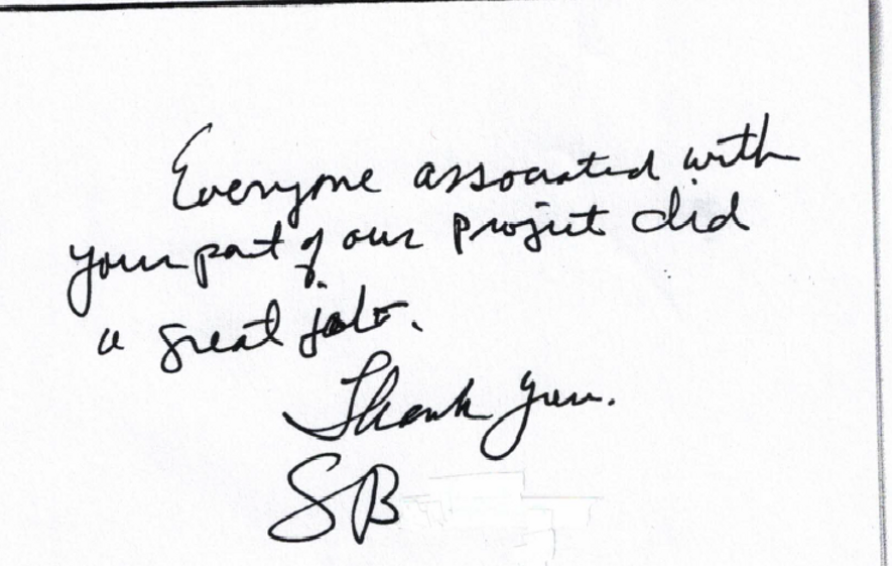 Everyone associated with
your part of our project did
a great job.
Thank you.
SB